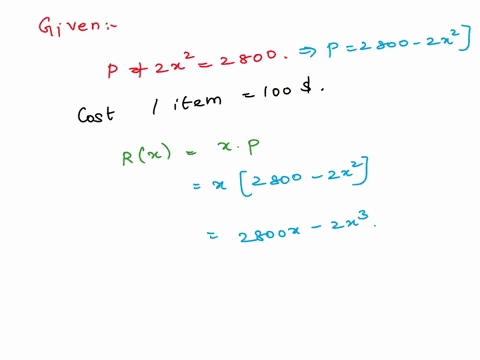 Given:-
P + 2x² = 2800. ⇒ P = 2800 - 2x²]
Cost / item = 100 $.
R(x) = x. P
= x [2800 - 2x²]
= 2800x - 2x³.